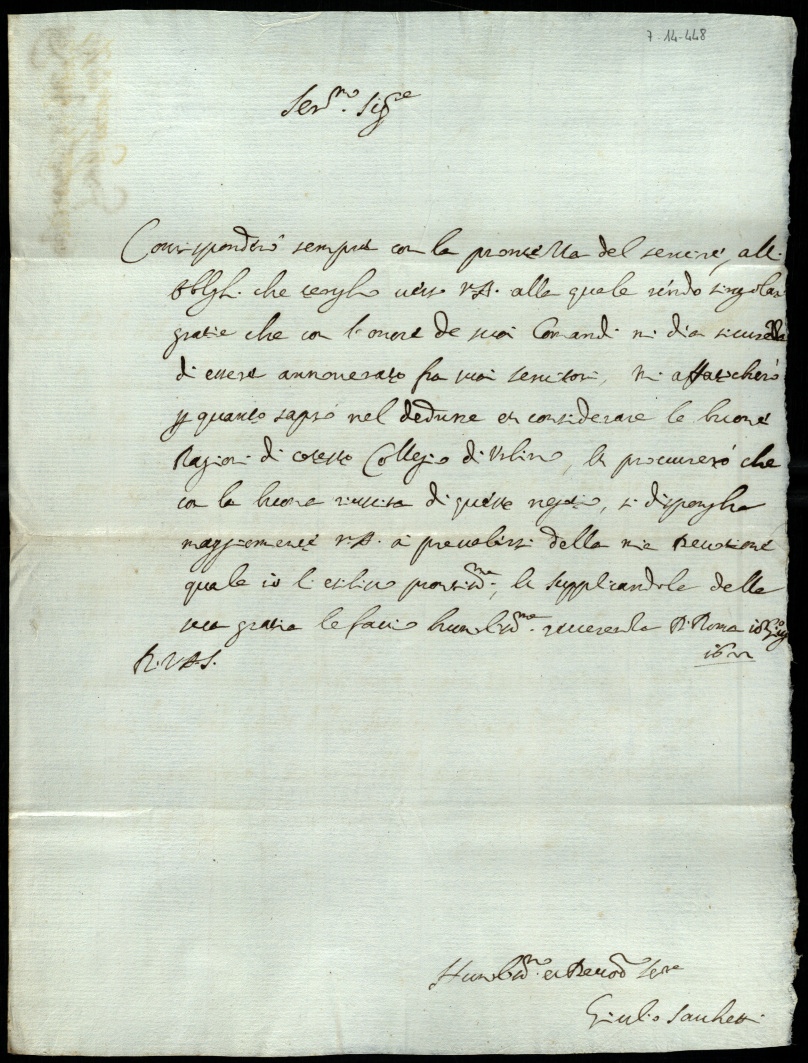 7-14-448
Ser.mo Sig.re
Corrisponderò sempre con la prontezza del servire, all'
oblgh. che tengho verso V.A. alla quale rendo singolar
gratie che con l'onore de suoi Comandi mi dia sicurezza
di essere annoverato fra suoi servitori, mi affaticherò
p quanto saprò nel dedurre et considerare le buone
Ragioni di cotesto Collegio di Urbino, et procurerò che
con la buona riuscita di questo negotio, si dispongha
maggiormente V.A. à prevalersi della mia Devotione
quale io l'esibisco prontiss.ma, et supplicandola della
sua gratia le faccio humiliss.ma reverenza Di Roma
D.V.A.S.
Humiliss.mo et Devot.mo Ser.re
Giulio Sacchetti